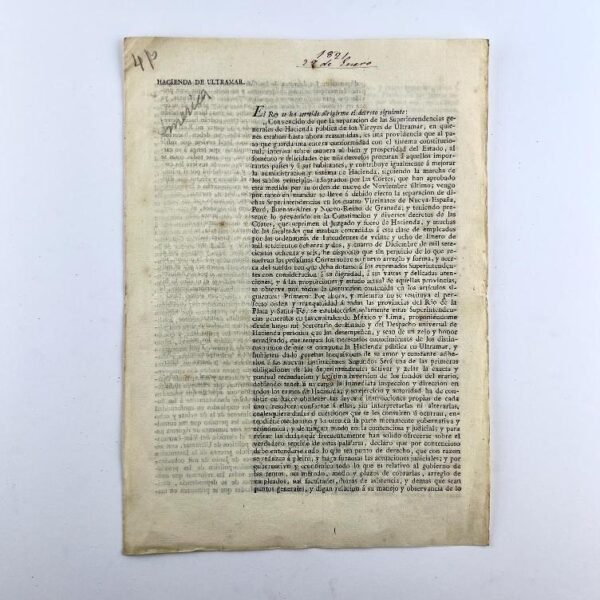 4P
1821
22 de Enero
HACIENDA DE ULTRAMAR.
America
El Rey se ha servido dirigirme el decreto siguiente:
„Convencido de que la separacion de las Superintendencias ge-
nerales de Hacienda pública de los Vireyes de Ultramar, en quie-
nes estaban hasta ahora reasumidas, es una providencia que al paso
que guarda una entera conformidad con el sistema constitucio-
nal, interesa sobre manera al bien y prosperidad del Estado, al
fomento y felicidades que mis desvelos procuran á aquellos impor-
tantes países y á sus habitantes, y contribuye igualmente á mejorar
la administracion y sistema de Hacienda, siguiendo la marcha de
los sabios principios adoptados por las Córtes, que han aprobado
esta medida por su orden de nueve de Noviembre último; vengo
en mandar se lleve á debido efecto la separacion de di-
chas Superintendencias en los cuatro Vireinatos de Nueva-España,
Perú, Buenos-Aires y Nuevo-Reino de Granada; y teniendo pre-
sente lo prevenido en la Constitucion y diversos decretos de las
Córtes, que suprimen el Juzgado y fuero de Hacienda, y muchas
de las facultades que estaban concedidas á esta clase de empleados
por las ordenanzas de Intendentes de veinte y ocho de Enero de
mil setecientos ochenta y dos, y cuatro de Diciembre de mil sete-
cientos ochenta y seis, he dispuesto que sin perjuicio de lo que re-
suelvan las próximas Córtes sobre su nuevo arreglo y forma, y acer-
ca del sueldo con que deba dotarse á los expresados Superintendentes
con consideracion á su dignidad, á sus vastas y delicadas aten-
ciones, y á las proporciones y estado actual de aquellas provincias,
se observe por todos la instruccion contenida en los artículos si-
guientes: Primero: Por ahora, y mientras no se restituya el per-
fecto orden y tranquilidad á todas las provincias del Rio de la
Plata y Santa Fé, se establecerán solamente estas Superintenden-
cias generales en las capitales de México y Lima, proponiéndome
desde luego mi Secretario de Estado y del Despacho universal de
Hacienda personas que las desempeñen, y sean de un zelo y honor
acreditado, que tengan los necesarios conocimientos de los distin-
tos ramos de que se compone la Hacienda pública en Ultramar, y
hubiesen dado pruebas inequívocas de su amor y constante adhe-
sion á las nuevas Instituciones. Segundo: Será una de las primeras
obligaciones de los Superintendentes activar y zelar la exacta y
puntual recaudacion y legítima inversion de los fondos del erario,
debiendo tener á su cargo la inmediata inspeccion y direccion en
todos los ramos de Hacienda; y su ejercicio y autoridad ha de con-
sistir en hacer observar las leyes é instrucciones propias de cada
uno, procediendo conforme á ellas, sin interpretarlas ni alterarlas,
cualesquiera dudas ó cuestiones que se les consulten ú ocurran, en-
tendiéndose reducida y la otra á la parte meramente gubernativa y
económica, y de ningun modo en la contenciosa y judicial; y para
evitar las dudas que frecuentemente han solido ofrecerse sobre el
verdadero sentido de estas palabras, declaro que por contencioso
debe entenderse todo lo que sea punto de derecho, que con razon
se reduzca á pleito, y haga forzosas las actuaciones judiciales; y por
gubernativo y económico todo lo que es relativo al gobierno de
las rentas, su método, modo y plazos de cobrarlas, arreglo de
empleados, sus facultades, horas de asistencia, y demas que sean
puntos generales, y digan relacion á su manejo y observancia de lo